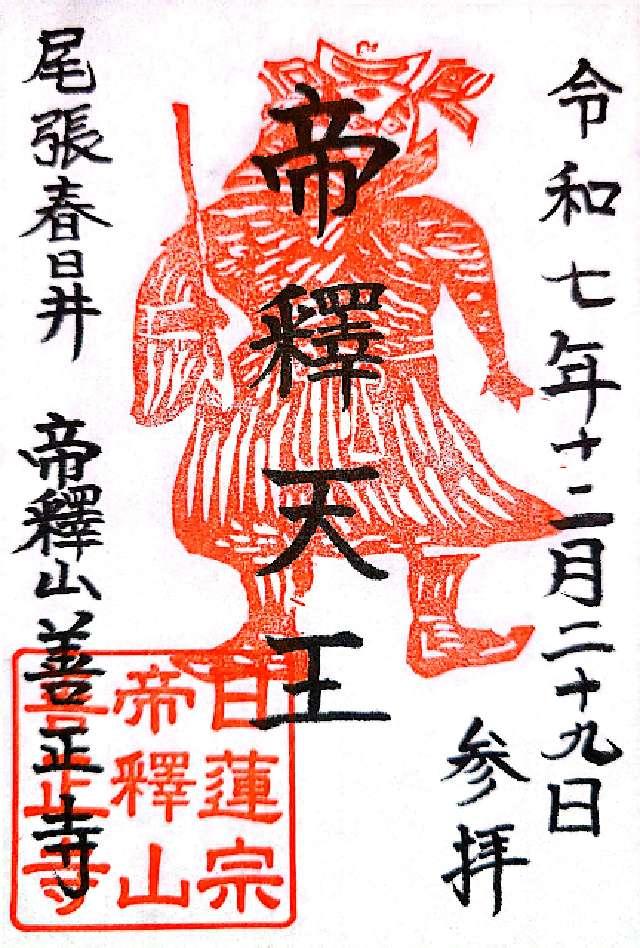 令和七年十二月二十九日
参拝
帝釋天王
尾張春日井 帝釋山善正寺
日蓮宗
帝釋山
善正寺